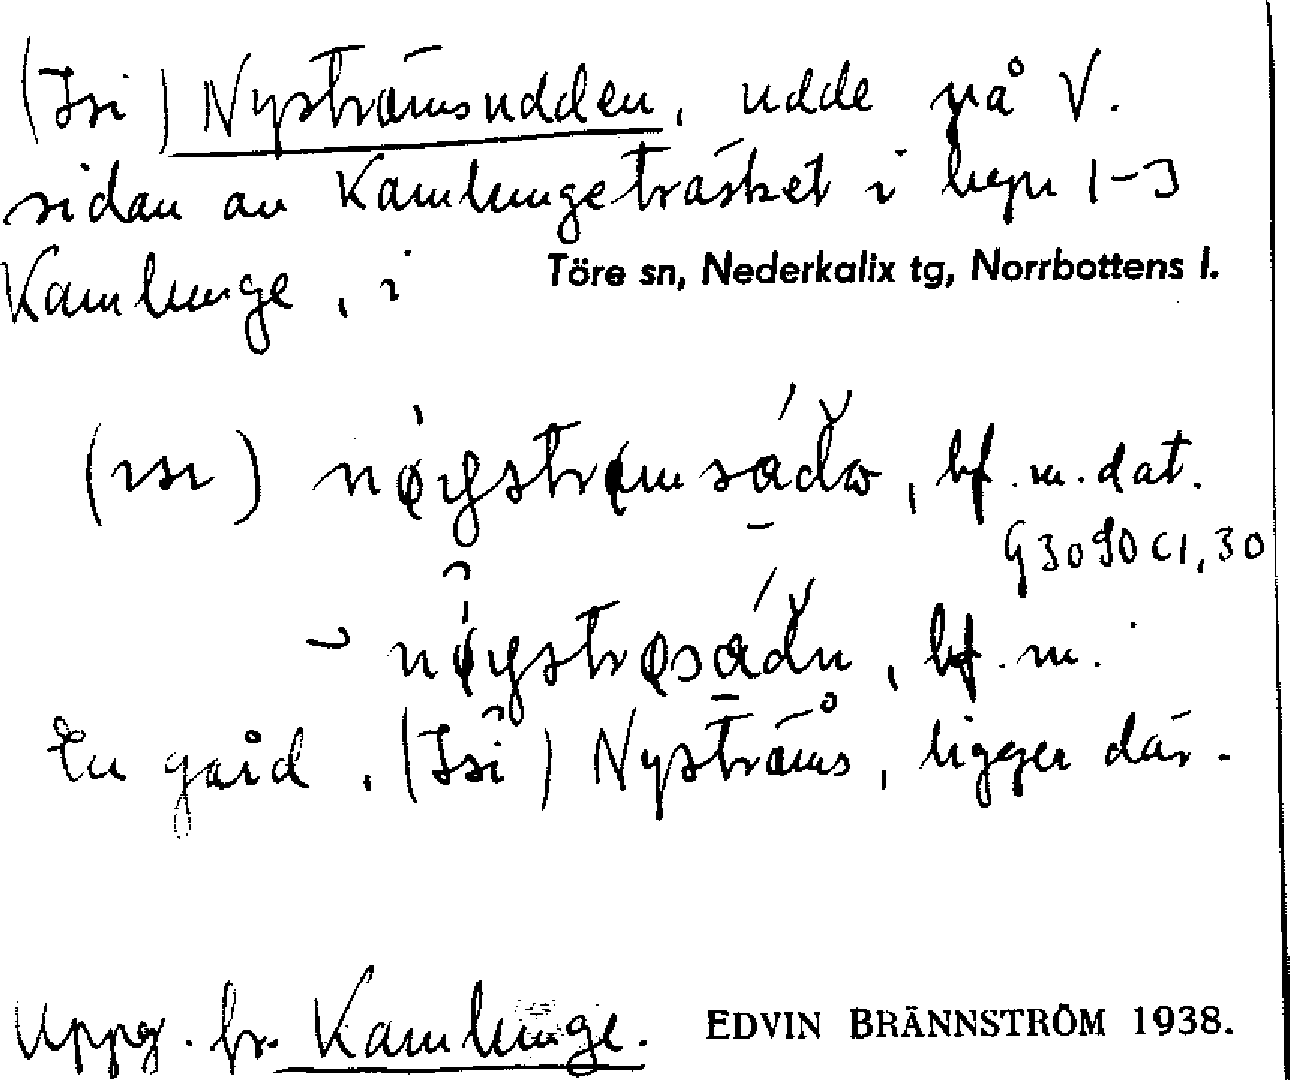 (Isi) Nyströmsudden, udde på V.
sidan av Kamlungeträsket i hyn 1-3
Kamlunge, i Töre sn, Nederkalix tg, Norrbottens l.
bf. m. dat.
G3090 C1, 30
bf. m.
En gård, (Isi) Nyströms, ligger där.
Uppg. fr. Kamlunge. EDVIN BRÄNNSTRÖM 1938.